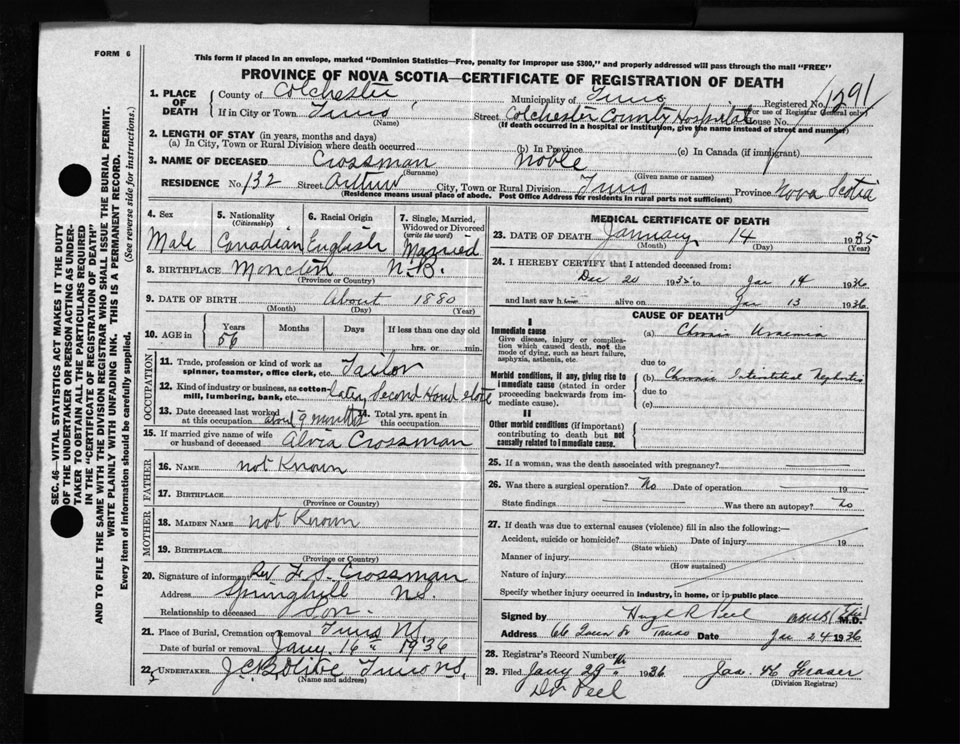 FORM 6
This form if placed in an envelope, marked "Dominion Statistics—Free, penalty for improper use $300," and properly addressed will pass through the mail "FREE"
PROVINCE OF NOVA SCOTIA—CERTIFICATE OF REGISTRATION OF DEATH
1. PLACE OF DEATH
County of Colchester Municipality of Truro Registered No. 1291
(For use of Registrar General only)
If in City or Town Truro Street Colchester County Hospital House No.
(Name) (If death occurred in a hospital or institution, give the name instead of street and number)
2. LENGTH OF STAY (in years, months and days)
(a) In City, Town or Rural Division where death occurred (b) In Province (c) In Canada (if immigrant)
3. NAME OF DECEASED Crossman Noble
(Surname) (Given name or names)
RESIDENCE No. 132 Street Arthur City, Town or Rural Division Truro Province Nova Scotia
(Residence means usual place of abode. Post Office Address for residents in rural parts not sufficient)
4. Sex
Male
5. Nationality
(Citizenship)
Canadian
6. Racial Origin
English
7. Single, Married, Widowed or Divorced
(write the word)
Married
8. BIRTHPLACE Moncton N.B.
(Province or Country)
9. DATE OF BIRTH About 1880
(Month) (Day) (Year)
10. AGE in
Years Months Days If less than one day old
56 hrs. or min.
OCCUPATION
11. Trade, profession or kind of work as
spinner, teamster, office clerk, etc. Tailor
12. Kind of industry or business, as cotton
mill, lumbering, bank, etc. later Second Hand store
13. Date deceased last worked 14. Total yrs. spent in
at this occupation about 9 months this occupation
15. If married give name of wife
or husband of deceased Crossman
FATHER
16. NAME not Known
17. BIRTHPLACE
(Province or Country)
MOTHER
18. MAIDEN NAME not Known
19. BIRTHPLACE
(Province or Country)
20. Signature of informant Rev. Crossman
Address Springhill N.S.
Relationship to deceased Son.
21. Place of Burial, Cremation or Removal Truro N.S.
Date of burial or removal Jany. 16 " 1936
22. UNDERTAKER Truro N.S.
(Name and address)
MEDICAL CERTIFICATE OF DEATH
23. DATE OF DEATH January 14 1935
(Month) (Day) (Year)
24. I HEREBY CERTIFY that I attended deceased from:
Dec 20 1935 to Jan 14 1936
and last saw him alive on Jan 13 1936
CAUSE OF DEATH
I
Immediate cause (a) Chronic Uraemia
Give disease, injury or complication which caused death, not the mode of dying, such as heart failure, asphyxia, asthenia, etc.
due to
Morbid conditions, if any, giving rise to immediate cause (stated in order proceeding backwards from immediate cause). (b) Chronic Interstitial Nephritis
due to
(c)
II
Other morbid conditions (if important) contributing to death but not causally related to immediate cause.
25. If a woman, was the death associated with pregnancy?
26. Was there a surgical operation? No Date of operation 19
State findings Was there an autopsy? No
27. If death was due to external causes (violence) fill in also the following:—
Accident, suicide or homicide? Date of injury 19
(State which)
Manner of injury
(How sustained)
Nature of injury
Specify whether injury occurred in industry, in home, or in public place
Signed by Hugh R Peel M.D.
Address 66 Queen St Truro Date Jan 24 1936
28. Registrar's Record Number
29. Filed Jany 29th 1936 Fraser
(Division Registrar)
Dr Peel
SEC. 46—VITAL STATISTICS ACT MAKES IT THE DUTY
OF THE UNDERTAKER OR PERSON ACTING AS UNDER-
TAKER TO OBTAIN ALL THE PARTICULARS REQUIRED
IN THE "CERTIFICATE OF REGISTRATION OF DEATH"
AND TO FILE THE SAME WITH THE DIVISION REGISTRAR WHO SHALL ISSUE THE BURIAL PERMIT.
WRITE PLAINLY WITH UNFADING INK. THIS IS A PERMANENT RECORD.
Every item of information should be carefully supplied. (See reverse side for instructions.)